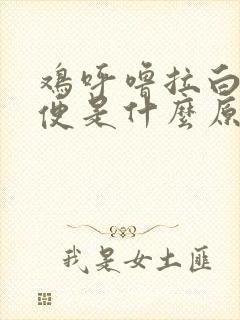 鸡呼噜拉白
便是什麼原
我是女土匪